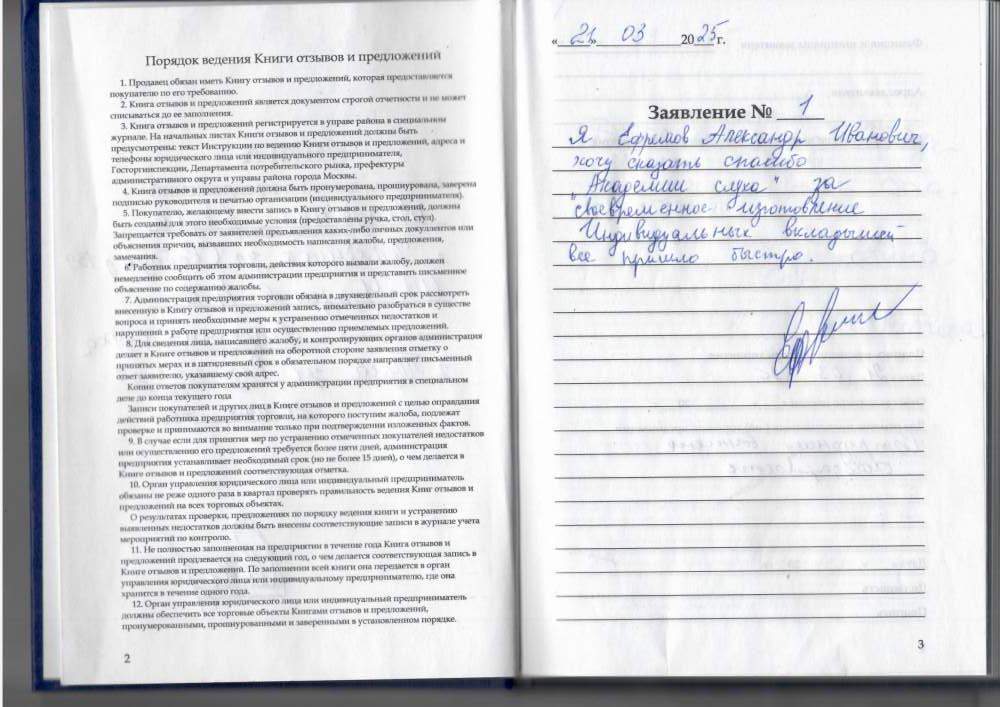 Порядок ведения Книги отзывов и предложений
1. Продавец обязан иметь Книгу отзывов и предложений, которая предоставляется
покупателю по его требованию.
2. Книга отзывов и предложений является документом строгой отчетности и не может
списываться до ее заполнения.
3. Книга отзывов и предложений регистрируется в управе района в специальном
журнале. На начальных листах Книги отзывов и предложений должны быть
предусмотрены: текст Инструкции по ведению Книги отзывов и предложений, адреса и
телефоны юридического лица или индивидуального предпринимателя,
Госторгинспекции, Департамента потребительского рынка, префектуры
административного округа и управы района города Москвы.
4. Книга отзывов и предложений должна быть пронумерована, прошнурована, заверена
подписью руководителя и печатью организации (индивидуального предпринимателя).
5. Покупателю, желающему внести запись в Книгу отзывов и предложений, должны
быть созданы для этого необходимые условия (предоставлены ручка, стол, стул).
Запрещается требовать от заявителей предъявления каких-либо личных документов или
объяснения причин, вызвавших необходимость написания жалобы, предложения,
замечания.
6. Работник предприятия торговли, действия которого вызвали жалобу, должен
немедленно сообщить об этом администрации предприятия и представить письменное
объяснение по содержанию жалобы.
7. Администрация предприятия торговли обязана в двухнедельный срок рассмотреть
внесенную в Книгу отзывов и предложений запись, внимательно разобраться в существе
вопроса и принять необходимые меры к устранению отмеченных недостатков и
нарушений в работе предприятия или осуществлению приемлемых предложений.
8. Для сведения лица, написавшего жалобу, и контролирующих органов администрация
делает в Книге отзывов и предложений на оборотной стороне заявления отметку о
принятых мерах и в пятидневный срок в обязательном порядке направляет письменный
ответ заявителю, указавшему свой адрес.
Копии ответов покупателям хранятся у администрации предприятия в специальном
деле до конца текущего года
Записи покупателей и других лиц в Книге отзывов и предложений с целью оправдания
действий работника предприятия торговли, на которого поступим жалоба, подлежат
проверке и принимаются во внимание только при подтверждении изложенных фактов.
9. В случае если для принятия мер по устранению отмеченных покупателей недостатков
или осуществлению его предложений требуется более пяти дней, администрация
предприятия устанавливает необходимый срок (но не более 15 дней), о чем делается в
Книге отзывов и предложений соответствующая отметка.
10. Орган управления юридического лица или индивидуальный предприниматель
обязаны не реже одного раза в квартал проверять правильность ведения Книг отзывов и
предложений на всех торговых объектах.
О результатах проверки, предложениях по порядку ведения книги и устранению
выявленных недостатков должны быть внесены соответствующие записи в журнале учета
мероприятий по контролю.
11. Не полностью заполненная на предприятии в течение года Книга отзывов и
предложений продлевается на следующий год, о чем делается соответствующая запись в
Книге отзывов и предложений. По заполнении всей книги она передается в орган
управления юридического лица или индивидуальному предпринимателю, где она
хранится в течение одного года.
12. Орган управления юридического лица или индивидуальный предприниматель
должны обеспечить все торговые объекты Книгами отзывов и предложений,
пронумерованными, прошнурованными и заверенными в установленном порядке.
2
« 21 » 03 2025 г.
Заявление № 1
Я Ефремов Александр Иванович,
хочу сказать спасибо
"Академии слуха" за
своевременное изготовление
Индивидуальных вкладышей
все пришло быстро.
3